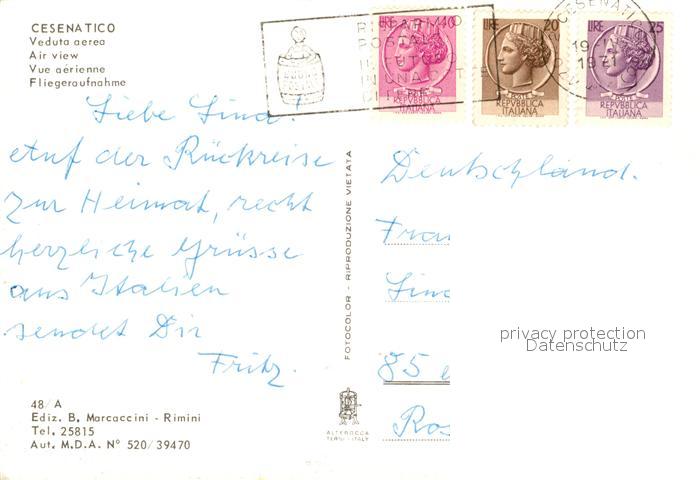 CESENATICO
Veduta aerea
Air view
Vue aérienne
Fliegeraufnahme
LIRE 40
REPVBBLICA
ITALIANA
LIRE 20
REPVBBLICA
ITALIANA
LIRE 25
REPVBBLICA
ITALIANA
CESENATICO
1971
Liebe Lina!
Auf der Rückreise
zur Heimat, recht
herzliche Grüsse
aus Italien
sendet Dir
Fritz.
FOTOCOLOR - RIPRODUZIONE VIETATA
Deutschland.
85
privacy protection
Datenschutz
48/A
Ediz. B. Marcaccini - Rimini
Tel. 25815
Aut. M.D.A. N° 520/39470
ALTEROCCA
TERNI-ITALY